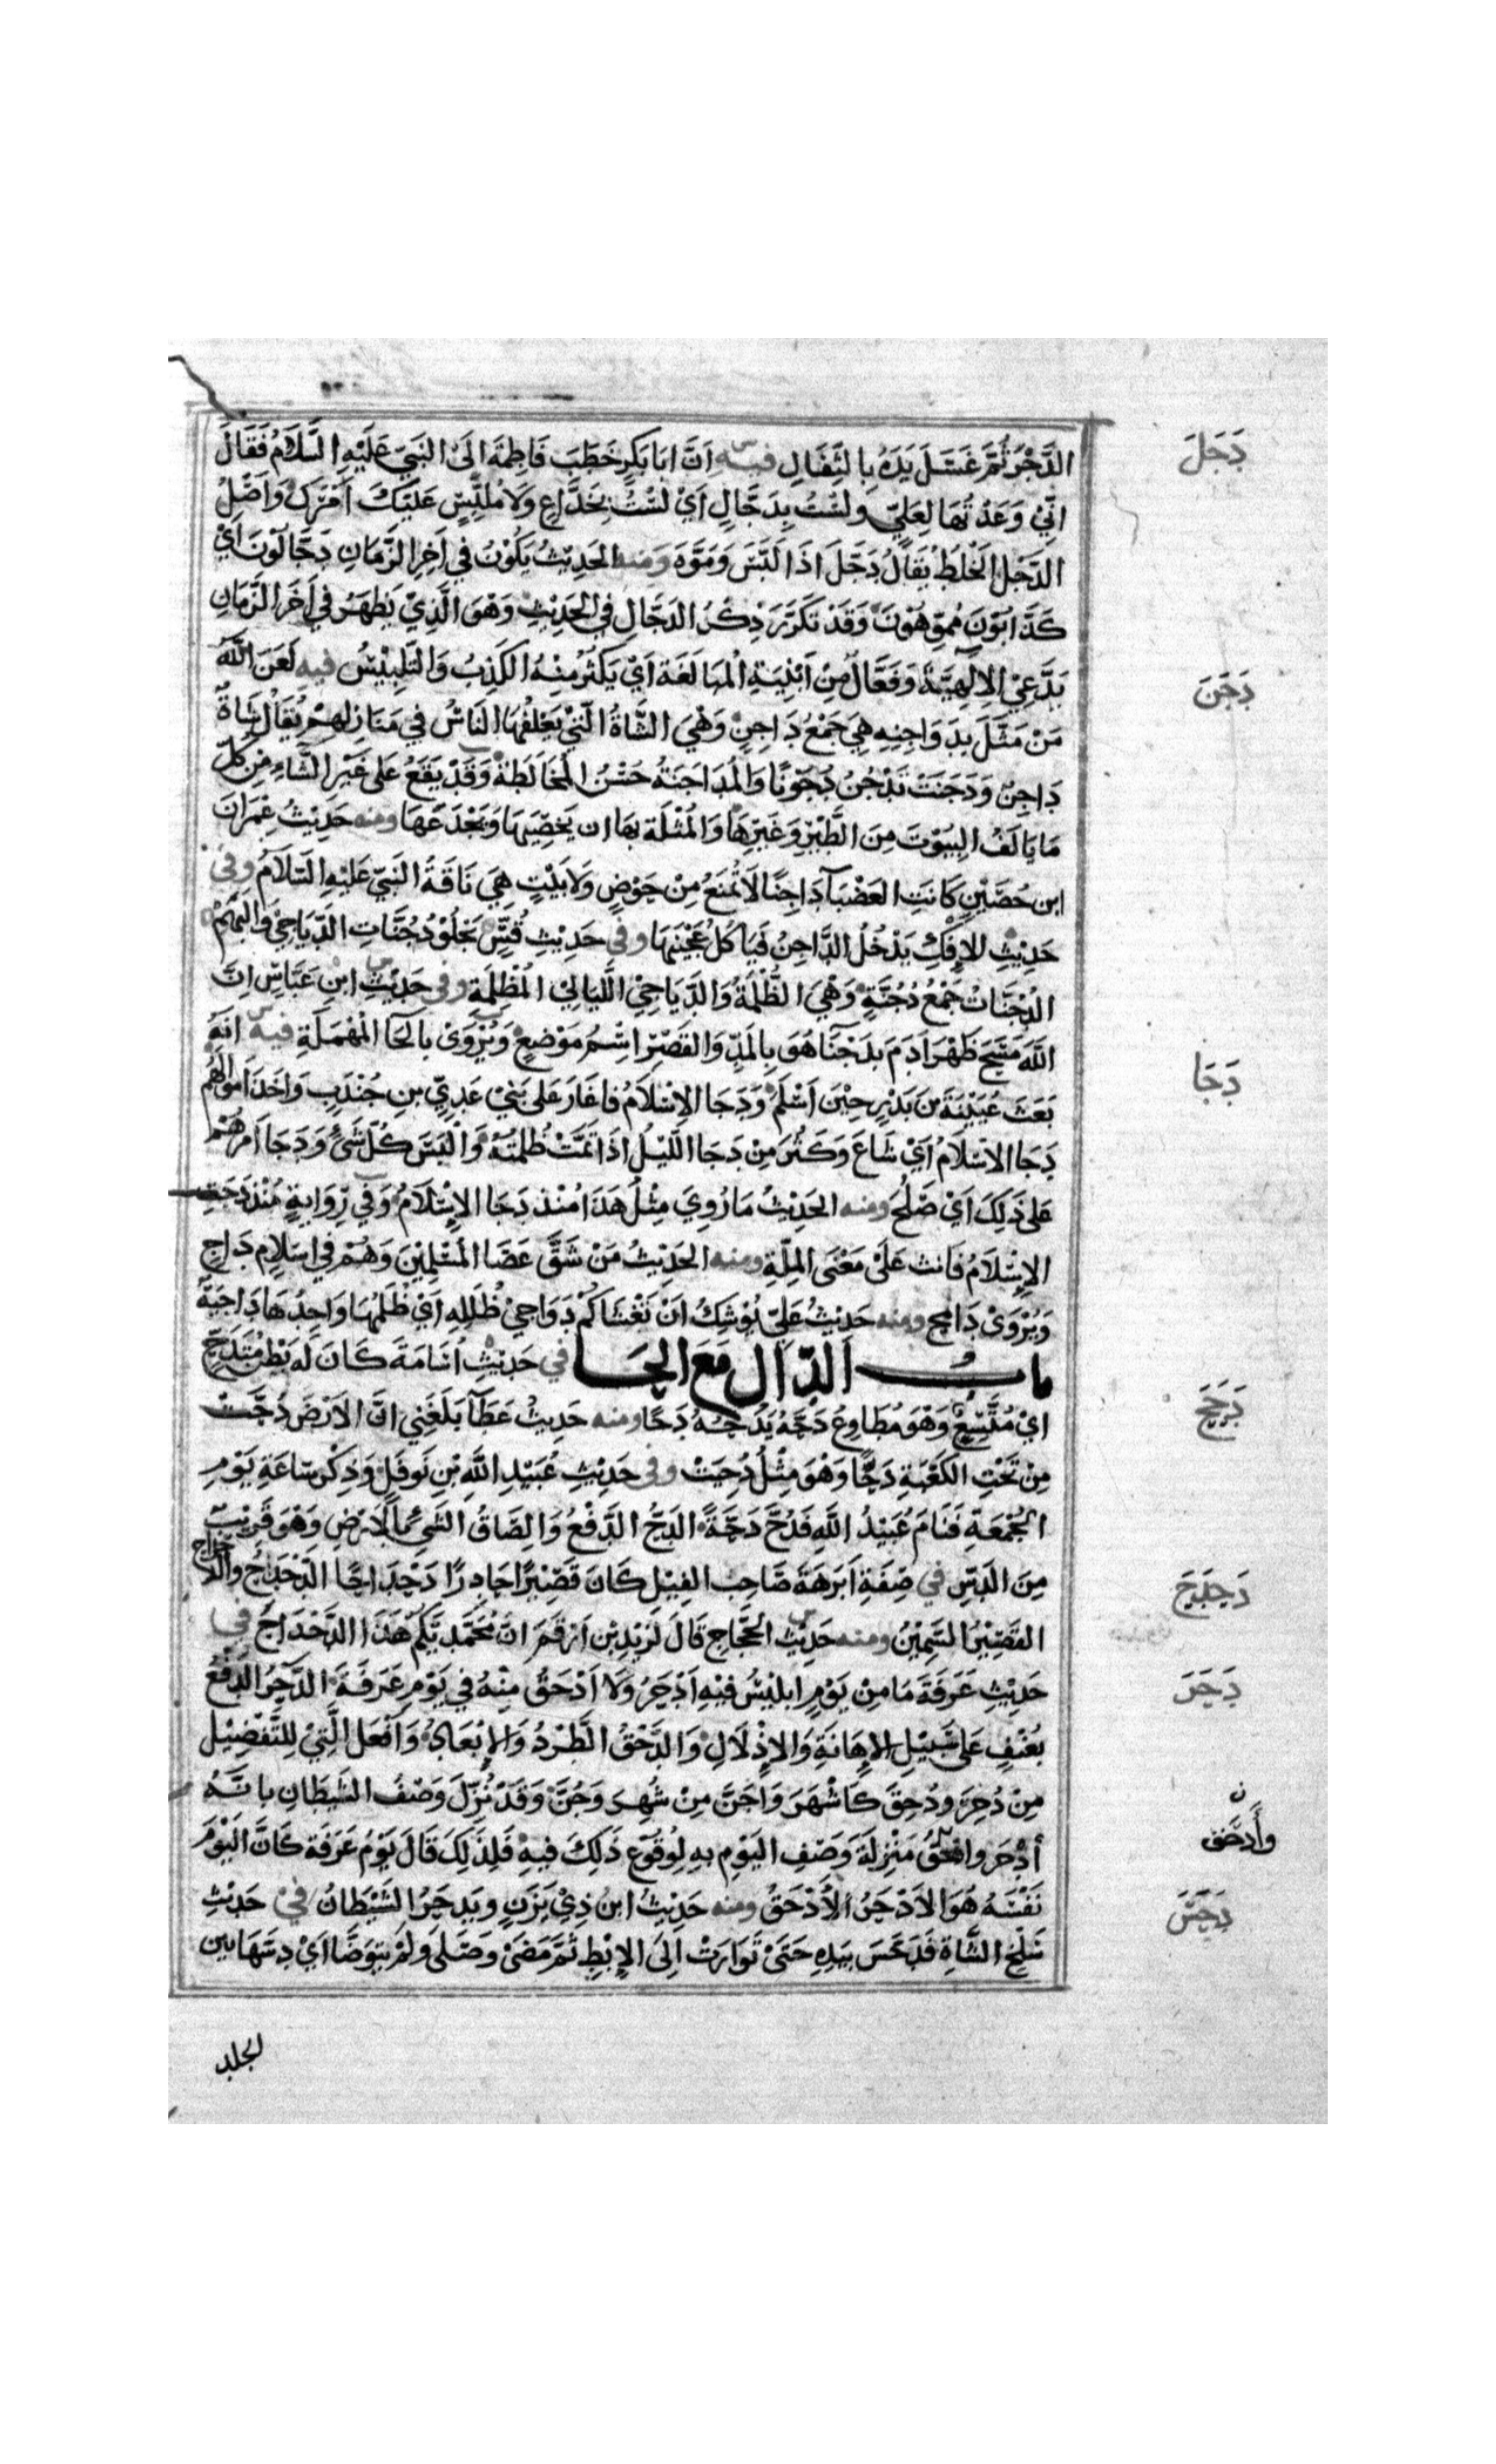 الدَّجْرُ ثُمَّ غَسَلَ يَدَهُ بِالثِّفَالِ فيه اَنَّ ابَا بَكرٍ خَطَبَ فَاطِمَةَ الَى النَبَيّ عَلَيْهِ السَّلَامُ فَقَالَ
دَجَلَ
اِنِّيْ وَعَدْتُهَا لِعَلِيٍّ ولسْتُ بِدَجَّالٍ اَيْ لسْتُ بِخَدَّاعٍ وَلَا مُلَبِّسٍ عَليَكَ اَمْرَكَ وَاَصْلُ
الدَّجَلِ الخَلطُ يقَالُ دَجَلَ اذَا لَبَّسَ وَمَوَّهَ وَمنه الحَدِيْثُ يَكُوْنُ في آخِرِ الزَّمَانِ دَجَّالُوْنَ اَيْ
كَذَّابُوْنَ مُمَوِّهُوْنَ وَقَدْ تَكَرَّرَ ذِكْرُ الدَجَّالِ في الحَدِيْثِ وَهْوَ الَّذِيْ يَظهَرُ في آخَرِ الزَّمَانِ
يَدَّعِيْ الِالٰهِيَّةَ وَفَعَّالٌ مِنْ اَبْنِيَةِ المُبَالَغَةِ اَيْ يَكثُرُ مِنْهُ الكَذِبُ وَالتَّلِبْيْسُ فيه لَعَنَ اللّٰهُ
دَجَنَ
مَنْ مَثَّلَ بِدَوَاجِنِهِ هِيَ جَمْعُ دَاجِنٍ وَهْيَ الشَّاةُ الَّتِيْ يَعْلِفُهَا النَاسُ في مَنَازِلهِمْ يُقَالُ شَاةٌ
دَاجِنٌ وَدَجَنَتْ تَدْجُنُ دُجُوْنًا وَالمُدَاجَنَةُ حُسْنُ المُخَالَطَةِ وَقَدْ يَقَعُ عَلى غَيْرِ الشَّاءِ مِنْ كلِّ
مَا يَالَفُ البُيُوْتَ مِنَ الطَّيْرِ وَغَيْرِهَا وَالمُثْلَة بهَا ان يَخصِيَهَا وَيَجْدَعَهَا ومنه حَدِيْثُ عِمْرَانَ
ابن حُصَيْنٍ كَانَتِ العَضْبَآ دَاجِنًا لَا تُمْنَعُ مِنْ حَوْضٍ وَلَا بَيْتٍ هِيَ نَاقَةُ النَبيّ عَلَيْهِ السَّلَامُ وفي
حَدِيْثِ الاِفْكِ يَدْخُلُ الدَّاجِنُ فَيَاكُلُ عَجْيْنَهَا وفي حَدِيْثِ قُسٍّ يَجْلُوْ دُجُنَّاتِ الدَّيَاجِيْ وَالبُهَمْ
الدُجُنَّاتُ جَمْعُ دُجُنَّةٍ وَهْيَ الظُّلْمَةُ وَالدَّيَاجِيْ اللَّيَالِيْ المُظْلِمَةِ وفي حَدِيْثِ ابْنِ عَبَّاسٍ اِنَّ
اللّٰهَ مَسَحَ ظَهْرَ آدَمَ بِدَجْنَا هُوَ بِالمَدِّ وَالقَصْرِ اسْمُ مَوْضِعٍ وَيُرْوَىْ بالحَا المُهْمَلَةِ فيه انهُ
دَجَا
بَعَثَ عُيَيْنَةَ بنَ بَدْرٍ حِيْنَ اَسْلَمَ وَدَجَا الاِسْلَامُ فاغَارَ عَلى بَنِيْ عَدِيِّ بنِ جُنْدَبٍ وَاخَذَ اموَالهُم
دَجَا الاسْلَامُ اَيْ شَاعَ وَكَثُرَ مِنْ دَجَا اللَّيْلُ اذَا تَمَّتْ ظُلمَتُهُ وَالبَسَ كُلَّ شَيْءٍ وَدَجَا اَمرُهُمْ
عَلى ذَلِكَ اَيْ صَلُحَ ومنه الحَدِيْثُ مَا رُوِيَ مِثْلُ هَذَا مُنْذ دَجَا الاِسْلَامُ وَفي رِّوَايةٍ مُنْذ دَجَتِ
الاِسْلَامُ فَانث عَلَى مَعْنَى المِلَّةِ ومنه الحَدِيْثُ مَنْ شَقَّ عَصَا المُسْلِمِيْنَ وَهُمْ في اِسْلَامٍ دَاجٍ
وَيُرْوَىْ دَامِجٍ ومنه حَدِيْثُ عَليٍّ يُوْشِكُ اَنْ تَغْشَاكُمْ دَوَاجِيْ ظُلَلِهِ اَيْ ظُلَمُهَا وَاحِدُهَا دَاجِيَةٌ
بابُ الدّال مَعَ الحَا في حَدِيْثِ اُسَامَةَ كَانَ لَهُ بَطْنٌ مُنْدَحٌّ
دَحَحَ
ايْ مُتَّسِعٌ وَهْوَ مُطَاوِعُ دَحَّهُ يَدُحُّهُ دَحًّا ومنه حَدِيثُ عَطَآ بَلَغَنِي انَّ الاَرْضَ دُحَّتْ
مِنْ تَحْتِ الكَعْبَةِ دَحًّا وَهْوَ مِثْلُ دُحِيَتْ وفي حَدِيْثِ عُبَيْدِ اللّٰهِ بْنِ نَوفَلٍ وَذِكْرِ سَاعَةِ يَوْمِ
الجُمْعَةِ فَنَامَ عُبَيْدُ اللّٰهِ فَدُحَّ دَحَّةً الدَحُّ الدَّفْعُ وَالِصَاقُ الشَيْءِ بالاَرضِ وَهْوَ قَرِيْبٌ
مِنَ الدَّسِّ في صِفَةِ اَبرَهَةَ صَاحِبِ الفِيْلِ كَانَ قَصْيْرًا حَادِرًا دَحْدَاحًا الدَّحْدَحُ والدحداح
دَحدَحَ
القَصِيْرُ السَّمِيْنُ ومنه حَدِيْثُ الحَجَّاجِ قَالَ لزَيْدِ بْنِ اَرْقَمَ انَّ مُحَمَّدِيَّكمْ هَذَا الدَّحْدَاحُ في
حَدِيْثِ عَرَفَةَ مَا مِنْ يَوْمٍ ابلِيْسُ فيْهِ اَدْحَرُ وَلَا اَدْحَقُ مِنْهُ في يَوْمِ عَرَفَةَ الدَّحْرُ الدَفْعُ
دَحَرَ
بُعنْفٍ عَلى سَبيْلِ الاِهَانَةِ وَالاِذْلَالِ وَالدَّحْقُ الطَّرْدُ وَالاِبْعَادُ وَاَفْعَل الَّتِيْ لِلتَّفْضِيْلِ
مِنْ دُحِرَ ودُحِقَ كَاشْهَرَ وَاجَنَّ مِنْ شُهِرَ وَجُنَّ وَقَدْ نُزِّلَ وَصْفُ الشَيطَانِ بانَّهُ
أدْحَر وادحقُ مَنْزِلَةَ وَصْفِ اليَوْمِ بهِ لِوُقُوْعِ ذَلِكَ فيهِ فَلِذَلِكَ قَالَ يَوْمُ عَرَفَة كَانَّ اليَوْمَ
نَفْسَهُ هُوَ الاَدْحَرُ الاَدْحَقُ ومنه حَدِيْثُ ابن ذِيْ يَزَنٍ ويَدحَرُ الشَيْطَانُ في حَدِيْثِ
دَحَسَ
سَلْخِ الشَّاةِ فَدَحَسَ بيَدِهِ حَتَىْ تَوَارَتْ اِلَى الاِبْطِ ثمَّ مَضَىْ وَصَلَّى وَلَمْ يتوَضَّا ايْ دسَّهَا بين
الجلد